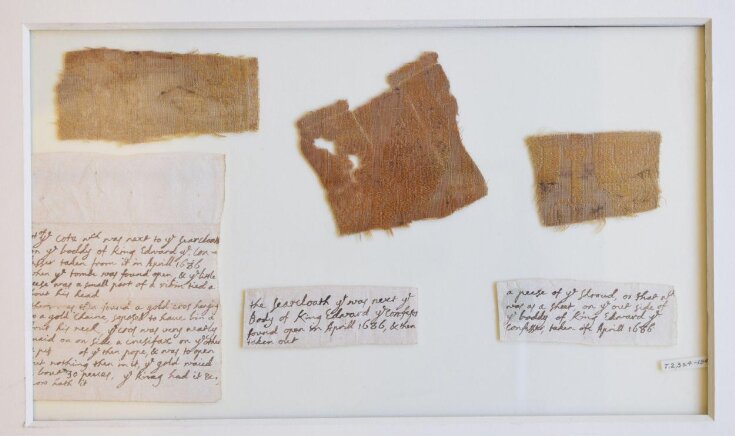 of ye Cote wch was next to ye Searcloath
on ye boddy of King Edward ye Con=
fessor taken from it in Aprill 1686
when ye tombe was found open, & ye little
peese was a small part of a ribin tied a
bout his head
there was allso found a gold cros
to a gold Chaine, to have bin a
bout his neck. ye cros was very neatly
maid on on side a crusifax on ye other
of then pope, & was to open
but nothing then in it, ye gold waied
bout 30 peeses. ye King had it &c.
now hath it
the Searcloath yt was next ye
Body of King Edward ye Confess
found open in Aprill 1686, & then
taken out
a peese of ye Shroud, or that wch
was as a sheet on ye out side of
ye boddy of King Edward ye
Confessor, taken of Aprill 1686